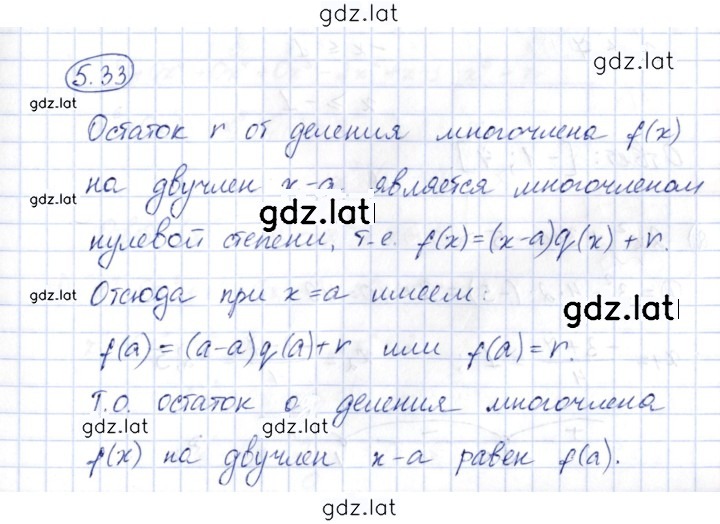 gdz.lat
5.33
gdz.lat
gdz.lat
Остаток r от деления многочлена f(x)
на двучлен x-a является многочленом
gdz.lat
gdz.lat
нулевой степени, т.е. f(x)=(x-a)q(x)+r.
Отсюда при x=a имеем:
gdz.lat
gdz.lat
f(a)=(a-a)q(a)+r или f(a)=r.
Т.о. остаток о деления многочлена
gdz.lat
gdz.lat
f(x) на двучлен x-a равен f(a).
gdz.lat